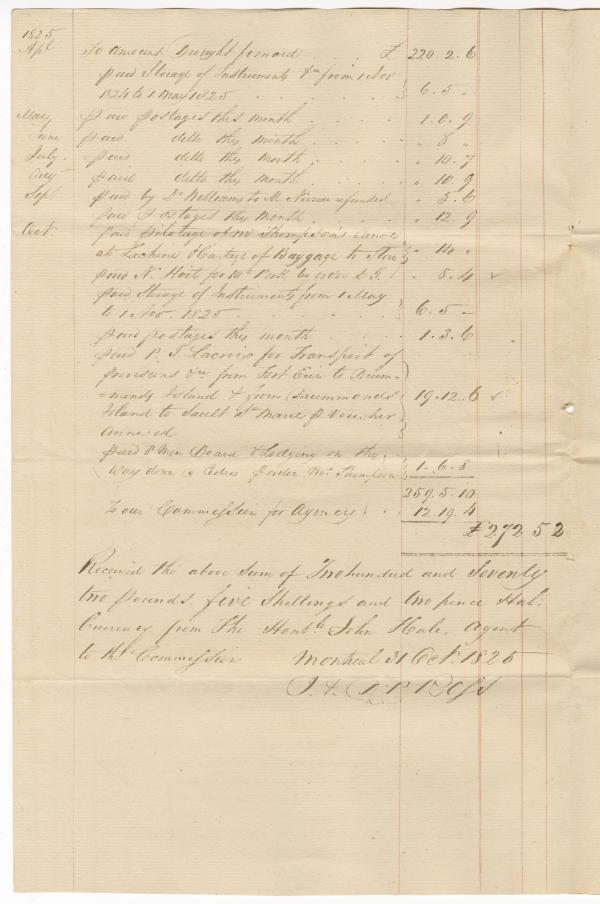 1825
Apl To amount Brought forward . . . £ 220. 2. 6
paid Storage of Instruments &c from 1 Nov
1824 to 1 May 1825 . . . . 6. 5 "
May paid postages this month . . . . 1. 0. 9
June paid ditto this month . . . . " 8 "
July paid ditto this month . . . . " 10. 7
Augt paid ditto this month . . . . " 10. 9
Sept paid by Dr Williams to M. refunded " 5. 6
paid Postages this month . . . . " 12. 9
Oct. paid Pilotage of Mr Thompson's canoe
at Lachine & Cartage of Baggage to Store " 14 "
paid N. Hoit for Pork by order D. T. " 8. 4
paid Storage of Instruments from 1 May
to 1 Nov. 1825 . . . . 6. 5 "
paid postages this month . . . . 1. 3. 6
paid P. T. Lacroix for Transport of
provisions &c from Fort Erie to Drum-
-monds Island & from Drummonds
Island to Sault St Marie P Voucher 19. 12. 6
annexed
paid 8 Men Board & Lodging on the
way down @ Cedres P order Mr Thompson 1. 6. 8
259. 5. 10
To our Commission for Agency . . 12. 19. 4
£ 272 5 2
Received the above Sum of Two hundred and Seventy
two pounds five Shillings and two pence Hal:
Currency from The Honble John Hale, Agent
to the Commission Montreal 31 Octr 1825